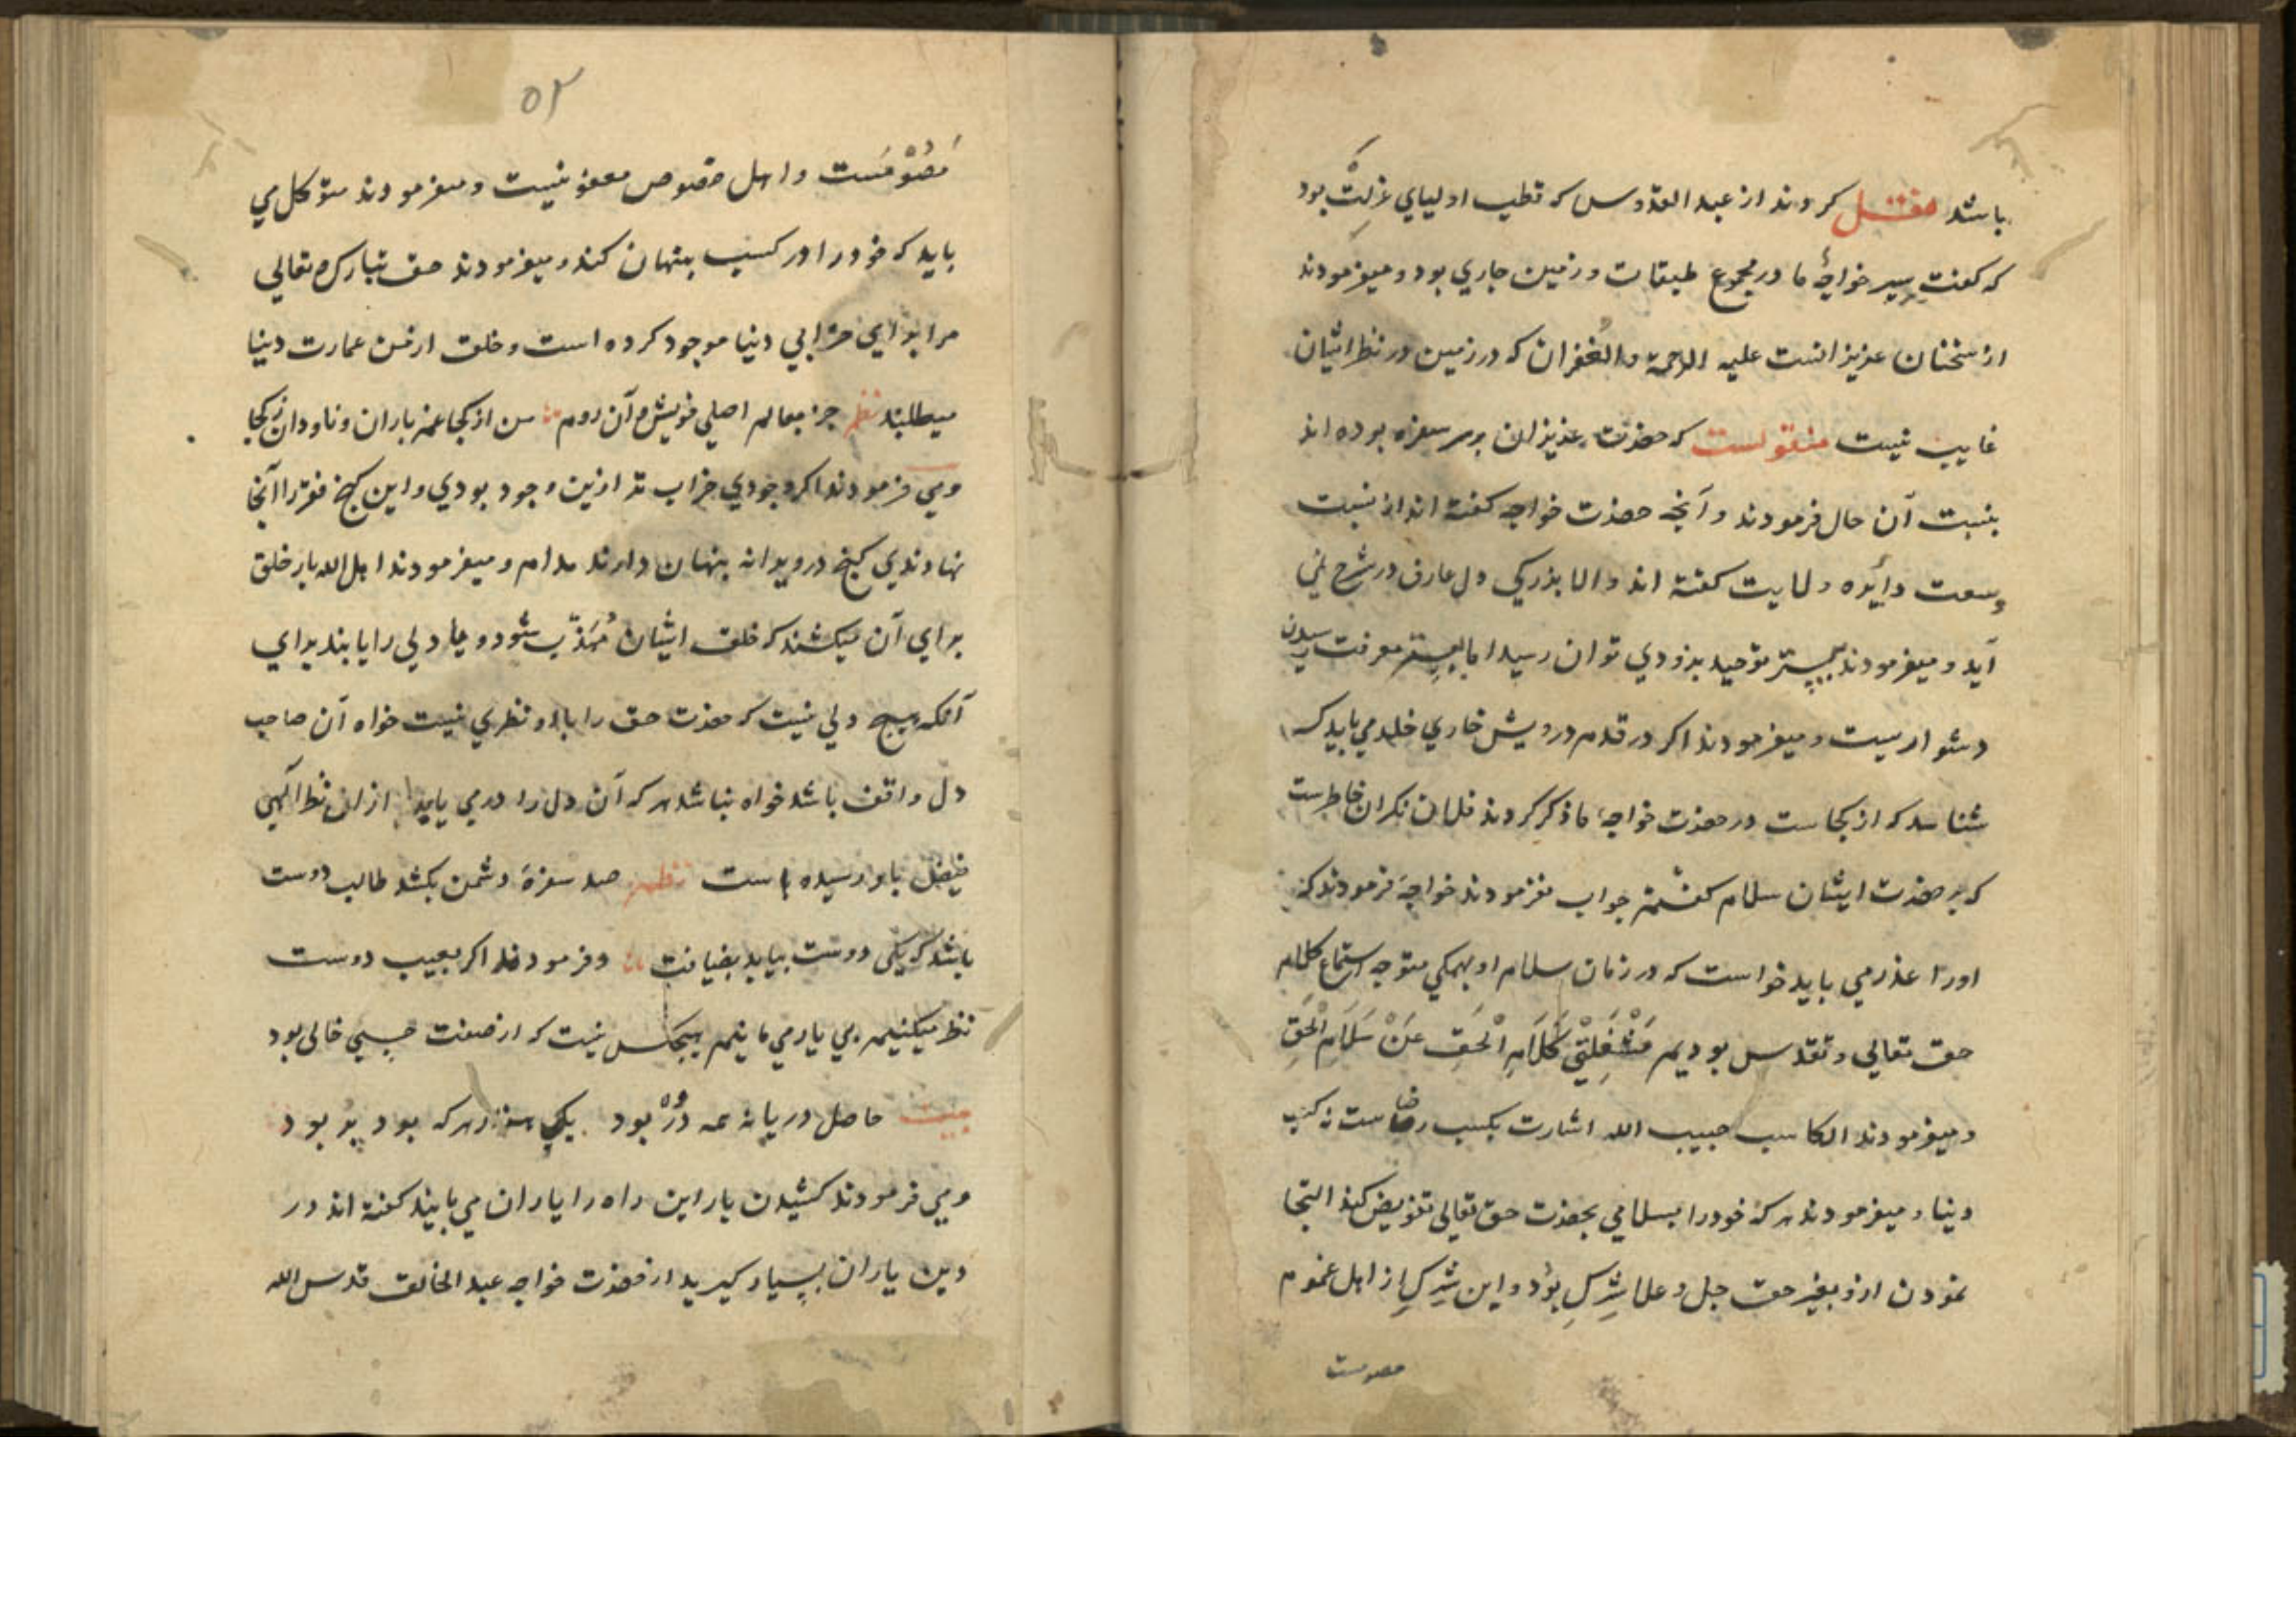 باشد نقل کردند از عبد القدوس که قطب اولیای عزلت بود
که گفت سیر خواجهٔ ما در مجموع طبقات زمین جاری بود و میفرمودند
از سخنان عزیزانست علیه الرحمة والغفران که در زمین در نظر ایشان
غایب نیست منقولست که حضرت عزیزان بر سر سفره بوده اند
بنسبت آن حال فرمودند و آنچه حضرت خواجه گفته اند از نسبت
وسعت دایره ولایت گفته اند و الا بزرکی دل عارف در شرح نمی
آید و میفرمودند بسر توحید بزودی توان رسید اما بسر معرفت رسیدن
دشوارست و میفرمودند اکر در قدم درویش خاری خلد می باید که
شناسد که از کجاست در حضرت خواجهٔ ما ذکر کردند فلان نکران خاطرست
که بر حضرت ایشان سلام گفتم جواب نفرمودند خواجه فرمودند که
اورا عذر می باید خواست که در زمان سلام او بهمکی متوجه استماع کلام
حق تعالی و تقدس بودیم مَشْغَلَتْنِي كَلَامِ الْحَقِ عَنْ سَلَامِ الْحَقِ
و میفرمودند الکاسب حبیب الله اشارت بکسب رضاست نه کسب
دنیا و میفرمودند هرکه خودرا بسلامی بحضرت حق تعالی تفویض کند التجا
نمودن ازو بغیر حق جل و علا شرک بود و این شرک از اهل عموم
معصومست
۵۲
معصومست و اهل خصوص معفو نیست و میفرمودند متوکل می
باید که خودرا در کسب پنهان کند و میفرمودند حق تبارک و تعالی
مرا برای خرابی دنیا موجود کرده است و خلق از من عمارت دنیا
میطلبند نظم جز بعالم اصلی خویش و آن روم من از کجا غم باران و ناودان ز کجا
و می فرمودند اکر وجودی خراب تر ازین وجود بودی و این کنج فقر را آنجا
نهادندی کنج در ویرانه پنهان دارند مدام و میفرمودند اهل الله بار خلق
برای آن میکشند که خلق ایشان مُهَذّب شود و یا دلی را یابند برای
آنکه هیچ دلی نیست که حضرت حق را با او نظری نیست خواه آن صاحب
دل واقف باشد خواه نباشد هرکه آن دل را در می یابد از ان نظر الهی
فیض باو رسیده است نظم صد سفرهٔ دشمن بکشد طالب دوست
باشد که یکی دوست بیاید بضیافت و فرمودند اکر بعیب دوست
نظر میکنیم بی یار می مانیم هیچکس نیست که از صفت حبسی خالی بود
بیت حاصل دریا نه همه دُرّ بود یک هنر از هرکه بود پر بود
و می فرمودند کشیدن بار این راه را یاران می بایند گفته اند در
دین یاران بسیار کیرید از حضرت خواجه عبد الخالق قدس الله